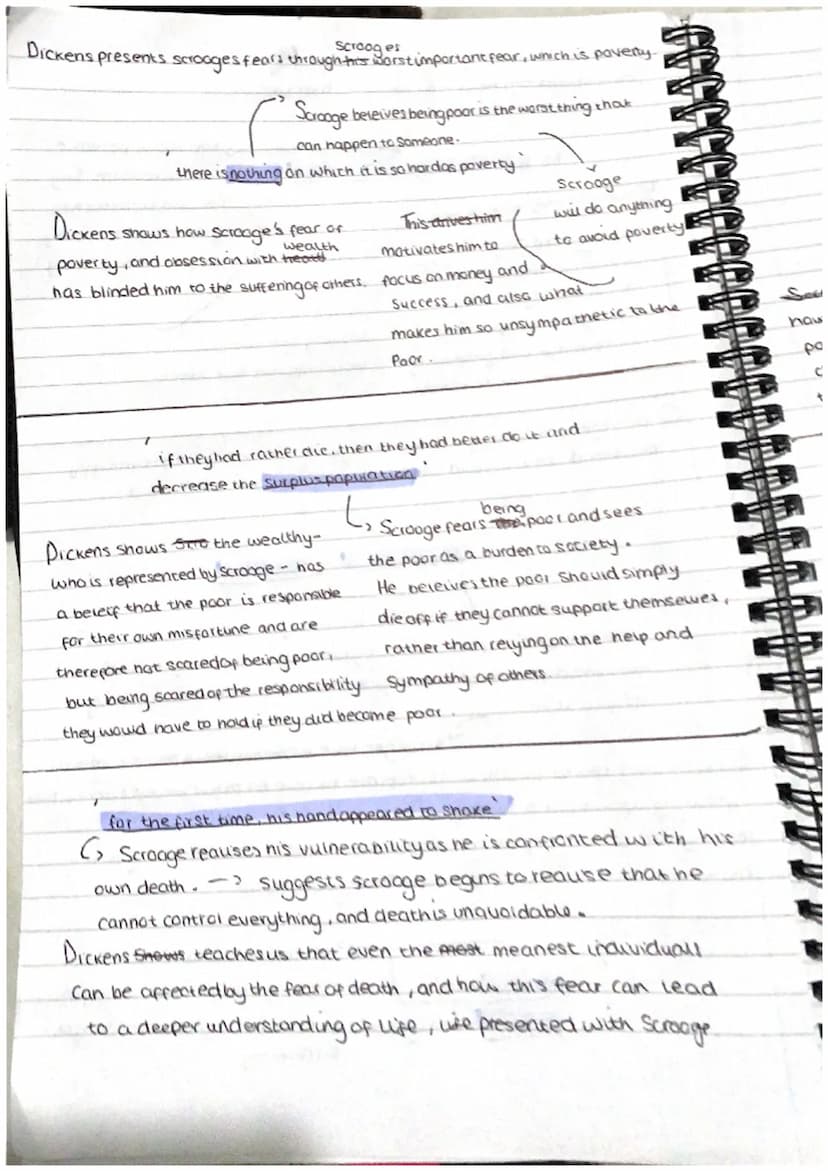 Scrooges
Dickens presents scrooges fears through his worst important fear, which is poverty.
Scrooge beleives being poor is the worst thing that
can happen to someone.
'there is nothing on which it is so hard as poverty'
Scrooge
will do anything
to avoid poverty
Dickens shows how scrooge's fear of
wealth
poverty, and obsession with
has blinded him to the suffering of others.
This drives him
motivates him to
focus on money and
success, and also what
makes him so unsympathetic to the
Poor.
'if they had rather die, then they had better do it and
decrease the surplus population'
being
Scrooge fears their poor and sees
the poor as a burden to society.
He beleives the poor should simply
die off if they cannot support themselves,
rather than relying on the help and
sympathy of others.
Dickens shows Scro the wealthy-
who is represented by scrooge - has
a beleif that the poor is responsible
for their own misfortune and are
therefore not scared of being poor,
but being scared of the responsibility
they would have to hold if they did become poor.
'for the first time, his hand appeared to shake'
Scrooge realises his vulnerability as he is confronted with his
own death. -> suggests scrooge begins to realise that he
cannot control everything, and death is unavoidable.
Dickens shows teaches us that even the most meanest individuall
can be affected by the fear of death, and how this fear can lead
to a deeper understanding of life, like presented with Scrooge